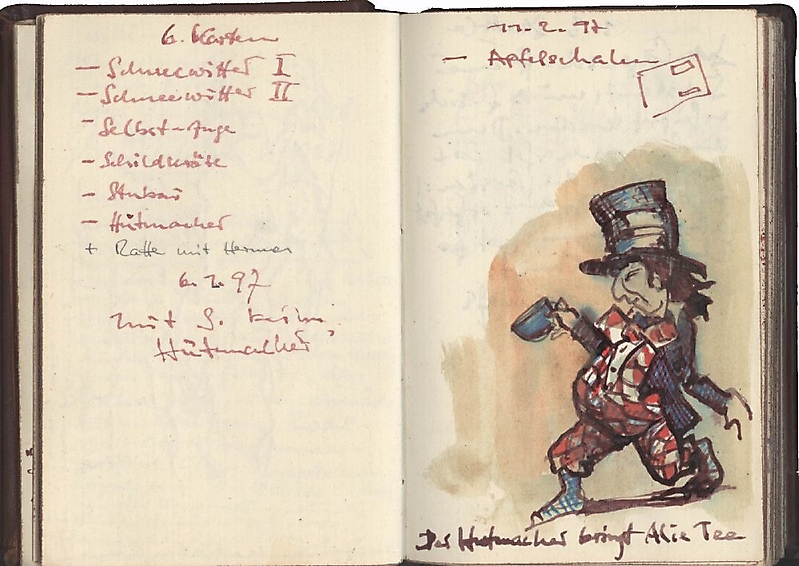 6. Karten
– Schneewitter I
– Schneewitter II
– Selbst-Auge
– Schildkröte
– Hutmacher
+ Ratte mit Hermes
6.2.97
mit S.
Hutmacher
11.2.97
– Apfelschalen
Der Hutmacher bringt Alice Tee